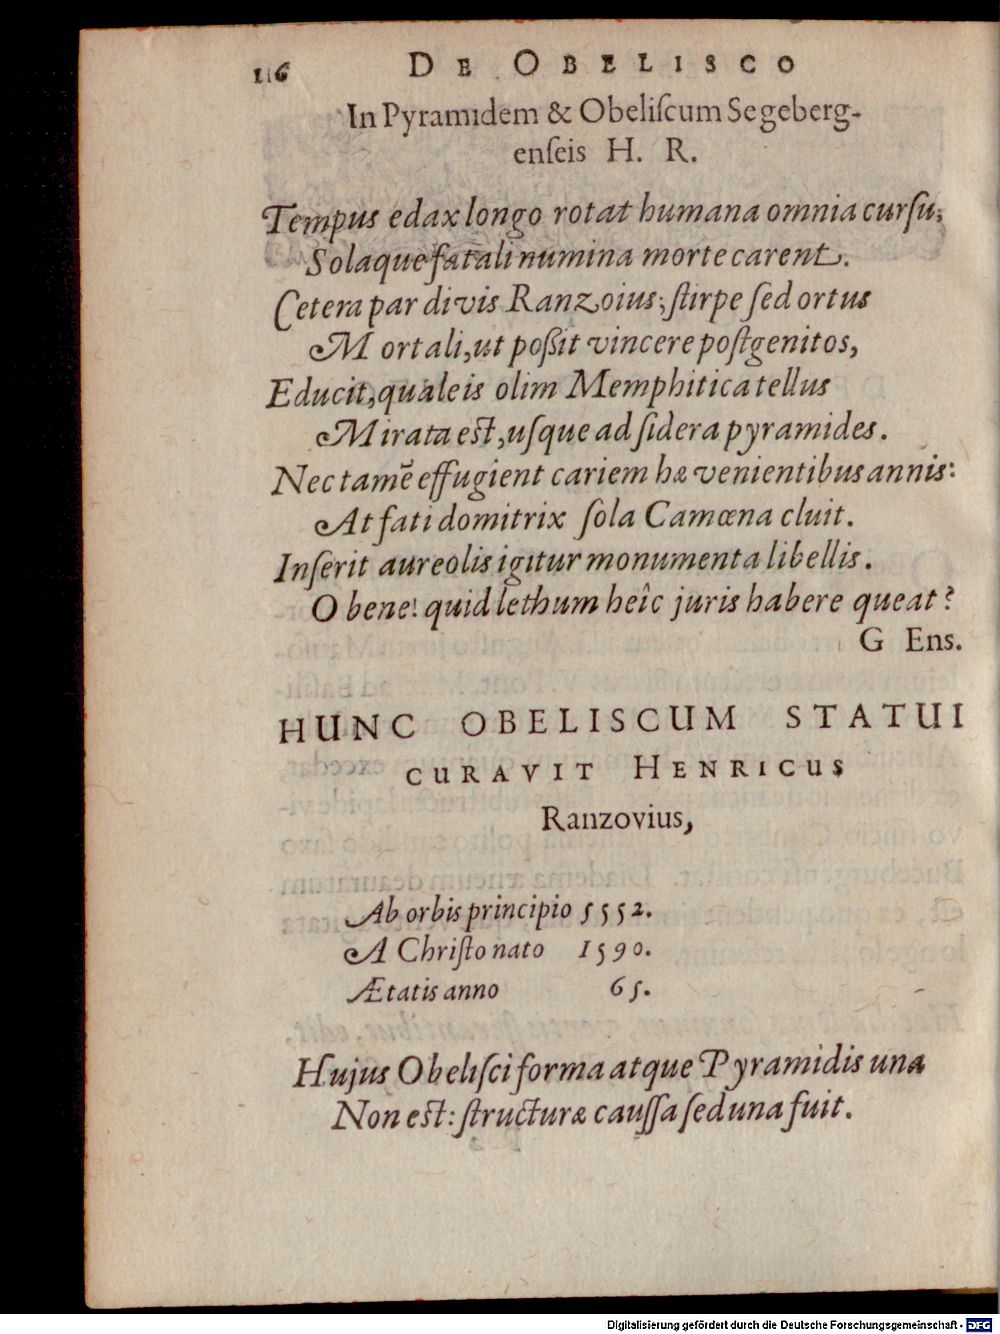 116 DE OBELISCO
In Pyramidem & Obeliſcum Segeberg-
enſeis H. R.
Tempus edax longo rotat humana omnia curſu;
Solaque fatali numina morte carent.
Cetera par divis Ranzoius; ſtirpe ſed ortus
Mortali, ut poßit vincere poſtgenitos,
Educit, qualeis olim Memphitica tellus
Mirata eſt, uſque ad ſidera pyramides.
Nec tamē effugient cariem hæ venientibus annis:
At fati domitrix ſola Camœna cluit.
Inſerit aureolis igitur monumenta libellis.
O bene! quid lethum heîc juris habere queat?
G Ens.
HUNC OBELISCUM STATUI
CURAVIT HENRICUS
Ranzovius,
Ab orbis principio 5552.
A Chriſto nato 1590.
Ætatis anno 65.
Hujus Obeliſci forma atque Pyramidis una
Non eſt: ſtructuræ cauſſa ſed una fuit.
Digitalisierung gefördert durch die Deutsche Forschungsgemeinschaft - DFG